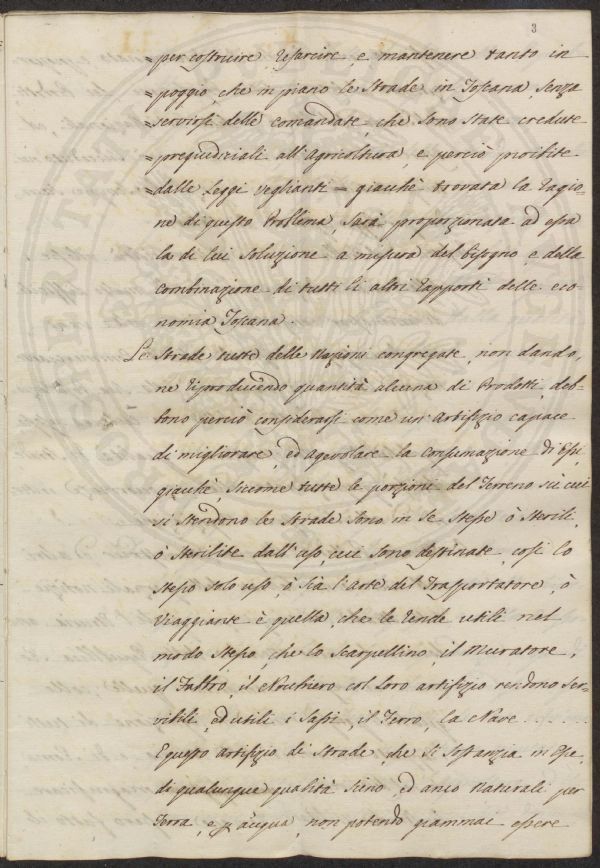 3
= per costruire, risarcire, e mantenere tanto in
= poggio, che in piano le Strade in Toscana, senza
= servirsi delle comandate, che sono state credute
= pregiudiziali all'Agricoltura, e perciò proibite
= dalle Leggi veglianti = giacchè trovata la ragio-
ne di questo Problema, sarà proporzionata ad essa
la di lui soluzione a misura del bisogno, e della
combinazione di tutti li altri rapporti delle eco-
nomia Toscana.
Le Strade tutte delle Nazioni congregate, non dando,
ne riproducendo quantità alcuna di Prodotti, deb-
bono perciò considerarsi come un'Artifizio capace
di migliorare, ed agevolare la consumazione di Essi,
giacchè, siccome tutte le porzioni del Terreno sù cui
si stendono le Strade sono in se stesse ò sterili,
ò sterilite dall'uso, cui sono destinate, così lo
stesso solo uso, ò sia l'arte del Trasportatore, ò
Viaggiante è quella, che le rende utili nel
modo stesso, che lo Scarpellino, il Muratore,
il Fabbro, il Nocchiero col loro artifizio rendono ser-
vibili, ed utili i Sassi, il Ferro, la Nave.
E questo artifizio di Strade, che si sostanzia in Esse,
di qualunque qualità sieno, ed anco naturali per
Terra, e p acqua, non potendo giammai essere